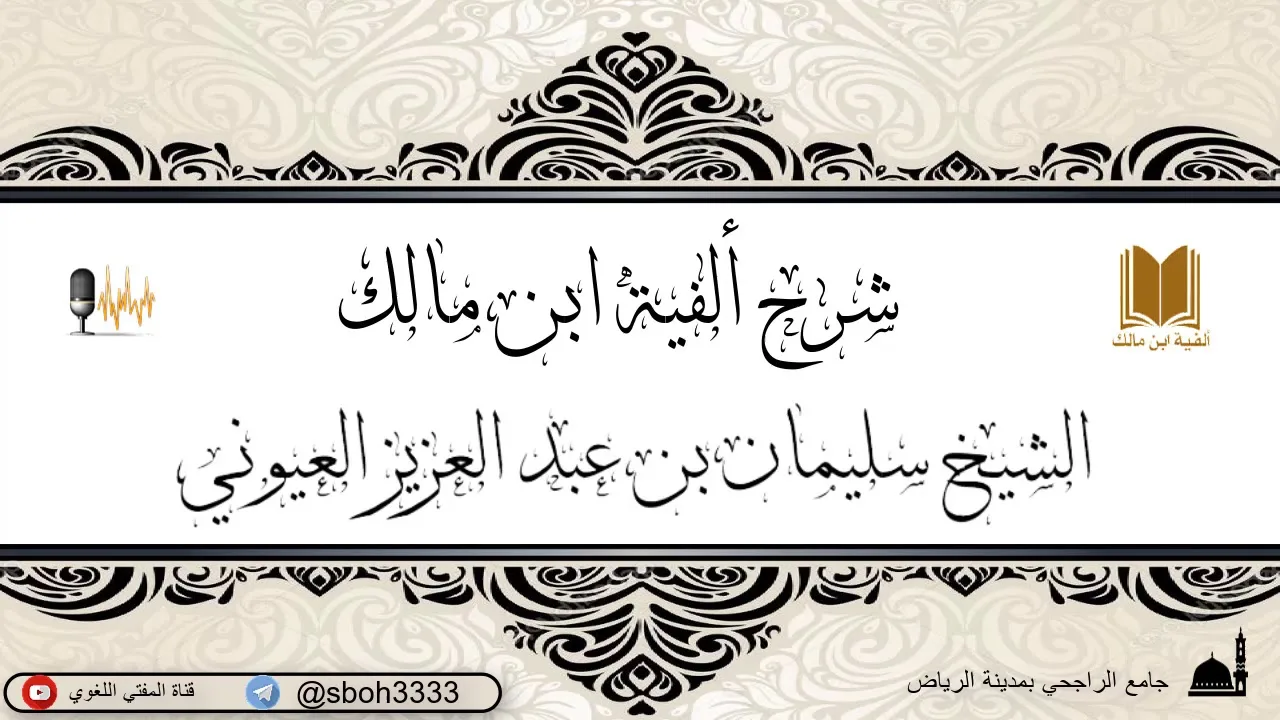 شرح ألفية ابن مالك
ألفية ابن مالك
الشيخ سليمان بن عبد العزيز العيوني
جامع الراجحي بمدينة الرياض
قناة المفتي اللغوي
@sboh3333